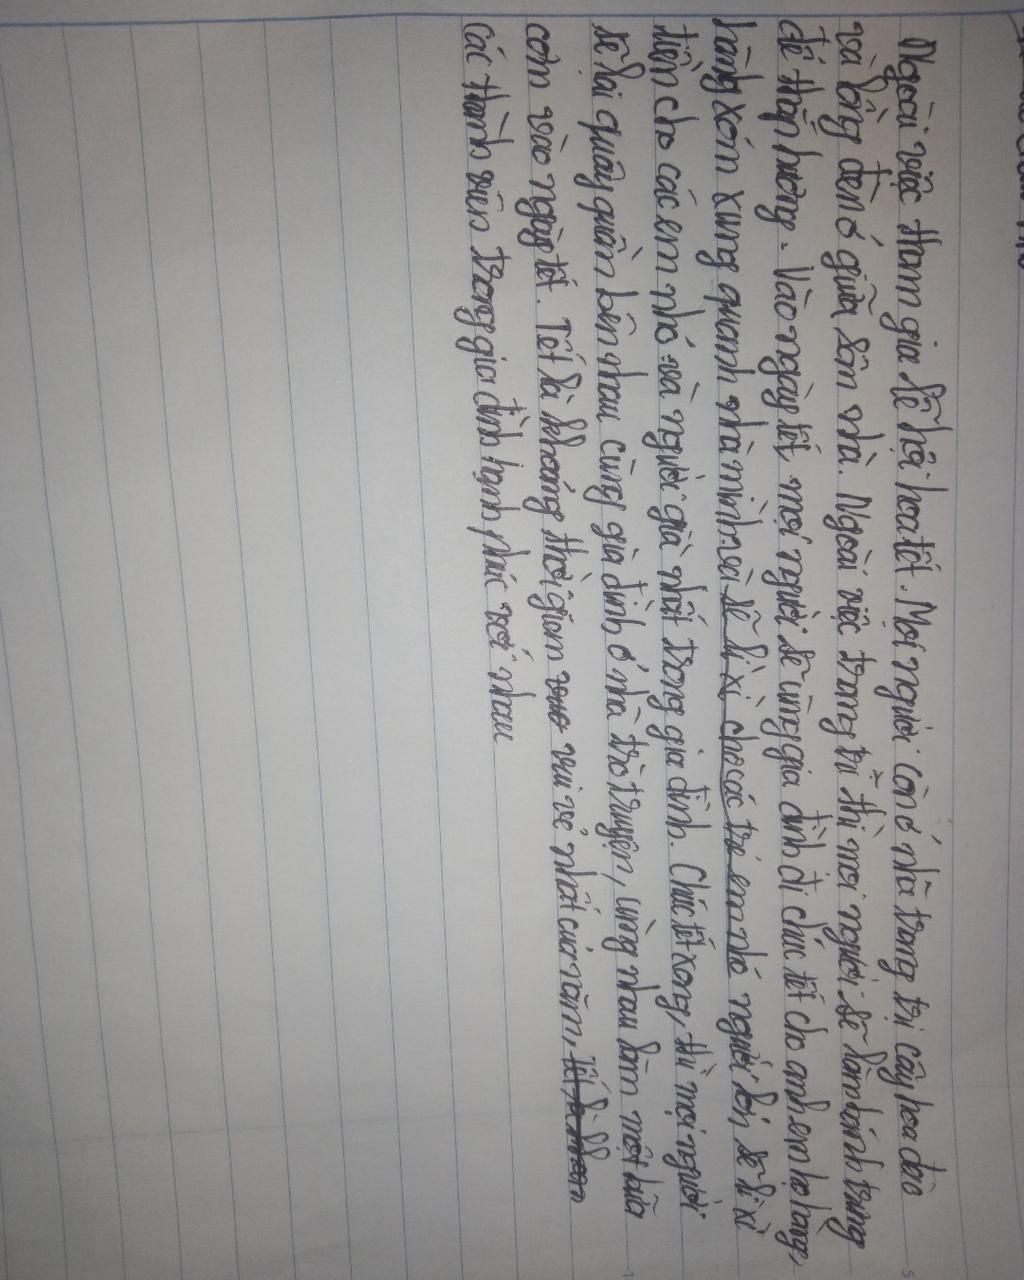 Ngoài việc tham gia lễ hội hoa tết. Mọi người còn ở nhà trang trị cây hoa đào
và lồng đèn ở giữa sân nhà. Ngoài việc trang trí thì mọi người sẽ làm bánh trưng
để thắp hương. Vào ngày tết, mọi người sẽ cùng gia đình đi chúc tết cho anh em họ hàng,
hàng xóm xung quanh nhà mình và sẽ lì xì cho các trẻ em nhỏ người lớn sẽ lì xì
tiền cho các em nhỏ và người già nhất trong gia đình. Chúc tết xong, thì mọi người
sẽ lại quây quần bên nhau cùng gia đình ở nhà trò truyện, cùng nhau làm một bữa
cơm vào ngày tết. Tết là khoảng thời gian vui vẻ nhất của năm,
các thành viên trong gia đình hạnh phúc với nhau